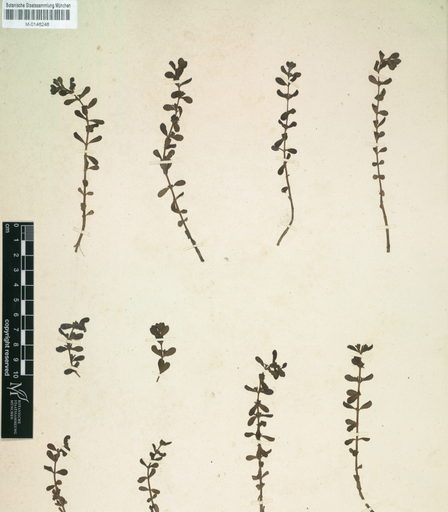 Botanische Staatssammlung München
M-0146248
cm
0 1 2 3 4 5 6 7 8 9 10
copyright reserved
M
BOTANISCHE
STAATSSAMMLUNG
MÜNCHEN